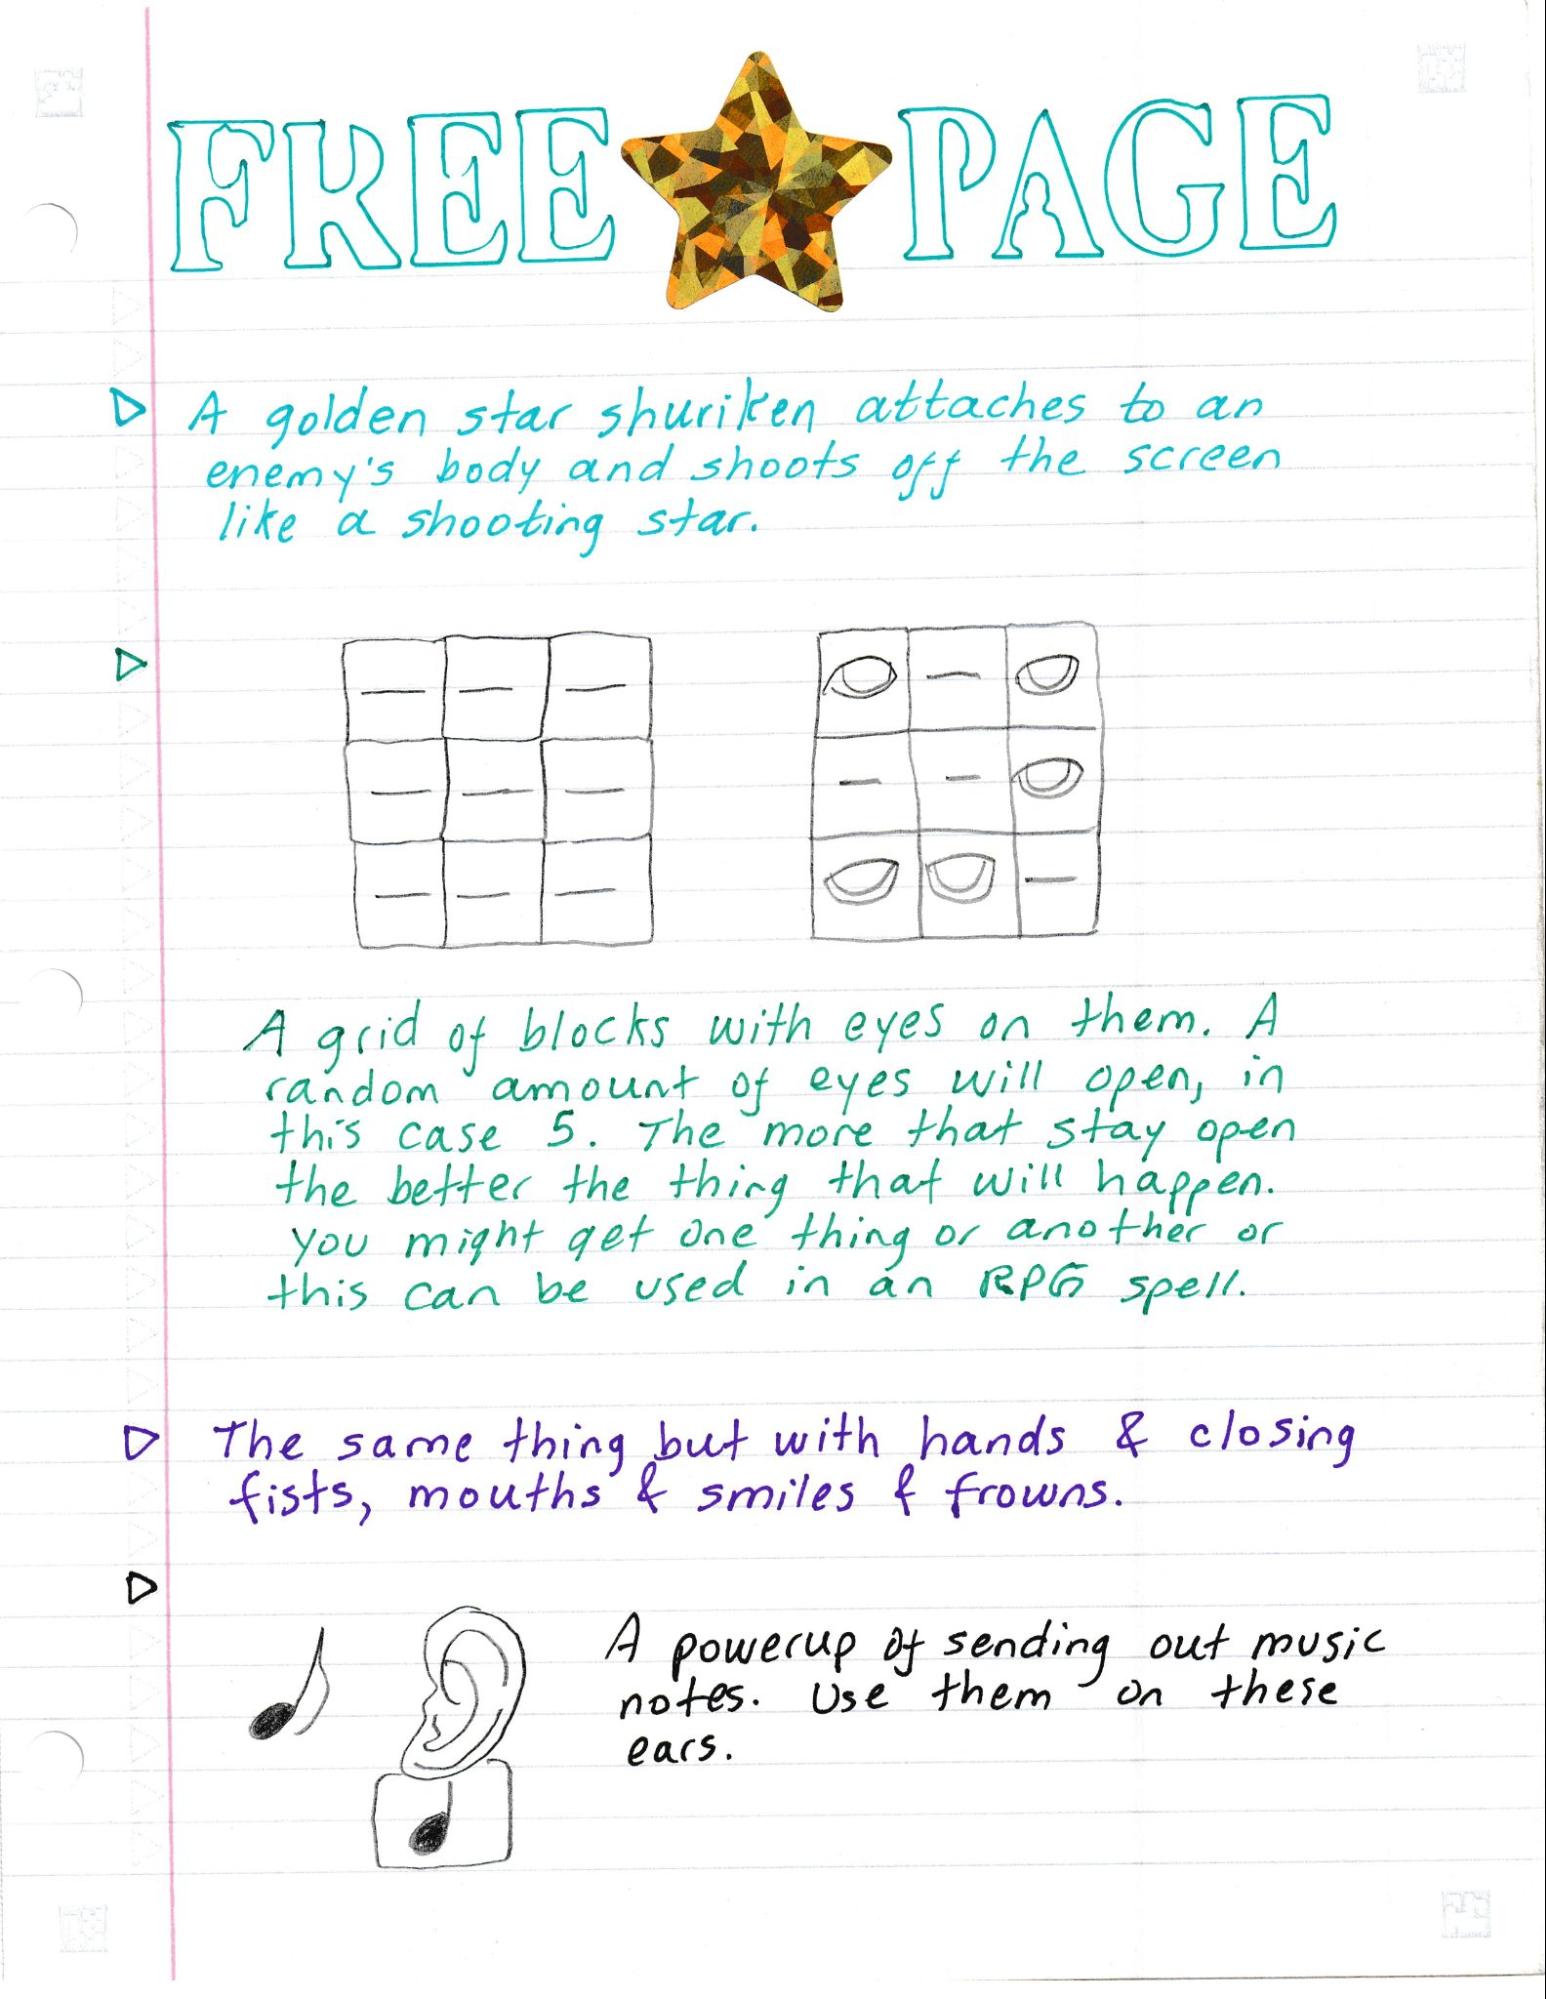 FREE PAGE
A golden star shuriken attaches to an
enemy's body and shoots off the screen
like a shooting star.
A grid of blocks with eyes on them. A
random amount of eyes will open, in
this case 5. The more that stay open
the better the thing that will happen.
You might get one thing or another or
this can be used in an RPG spell.
The same thing but with hands & closing
fists, mouths & smiles & frowns.
A powerup of sending out music
notes. Use them on these
ears.